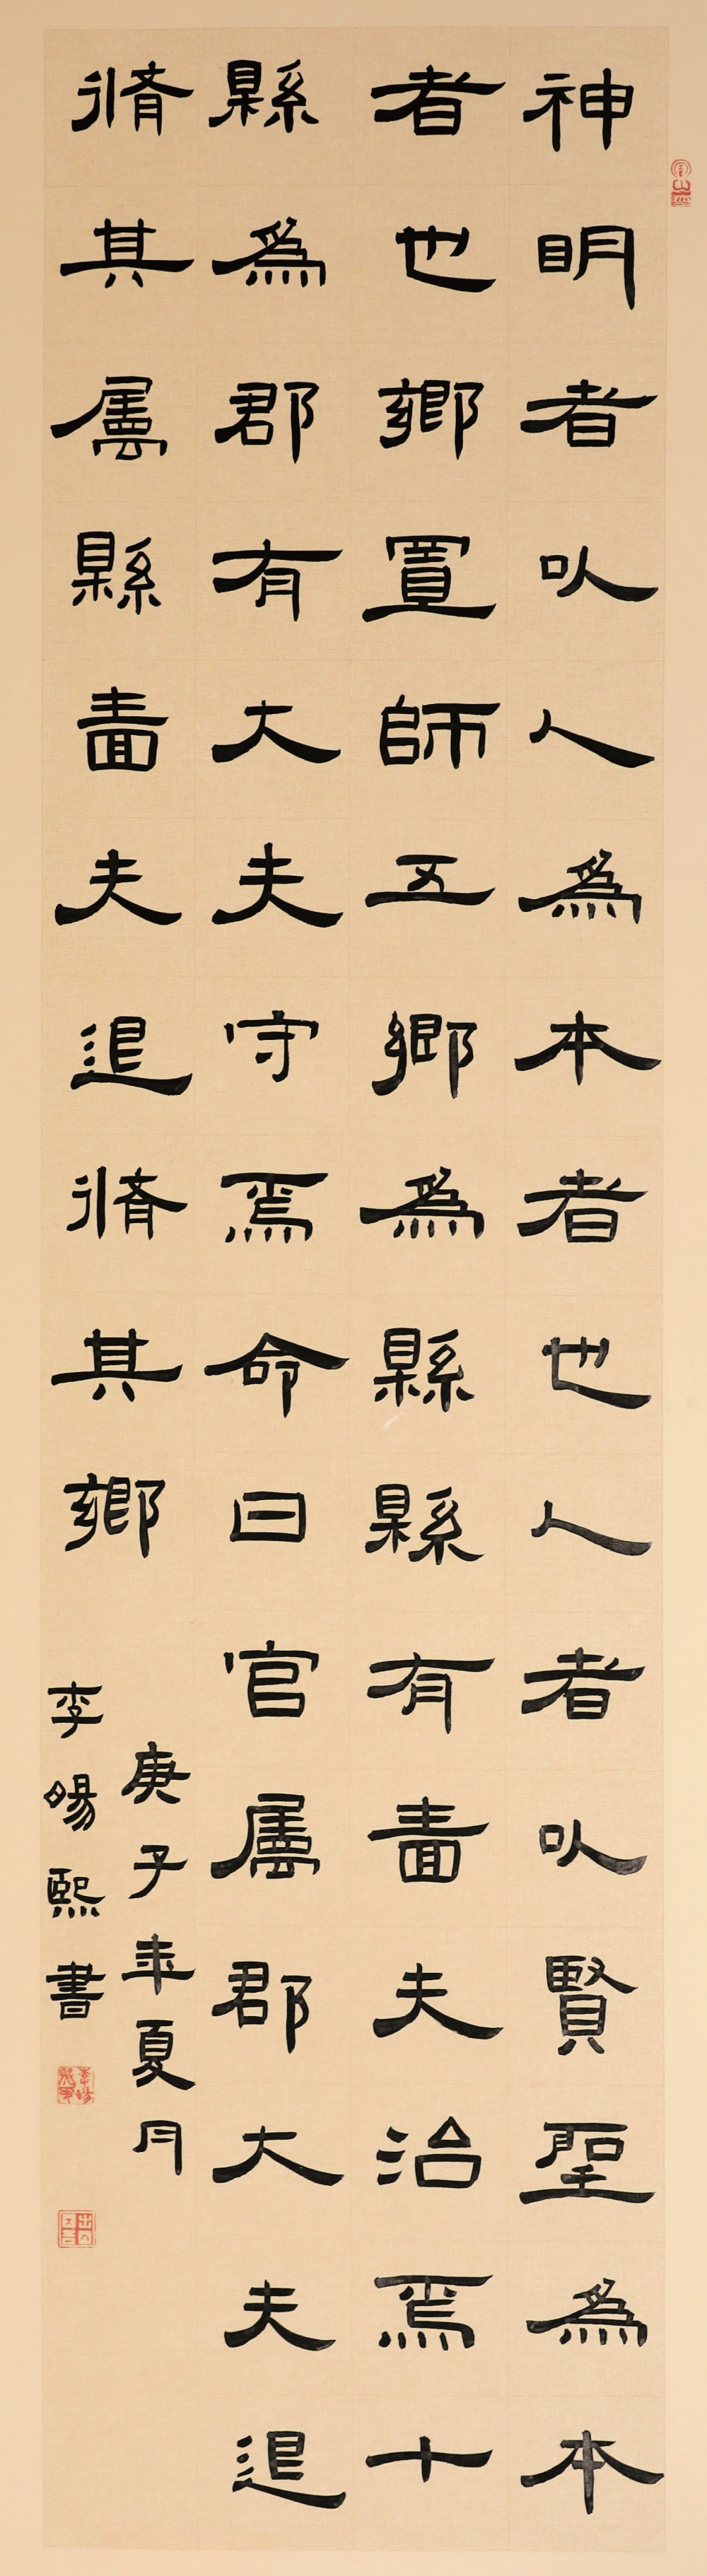 神明者以人為本者也人者以賢聖為本
者也鄉置師五鄉為縣縣有嗇夫治焉十
縣為郡有大夫守焉命曰官屬郡大夫退
脩其屬縣嗇夫退脩其鄉
庚子年夏月
李暘熙書